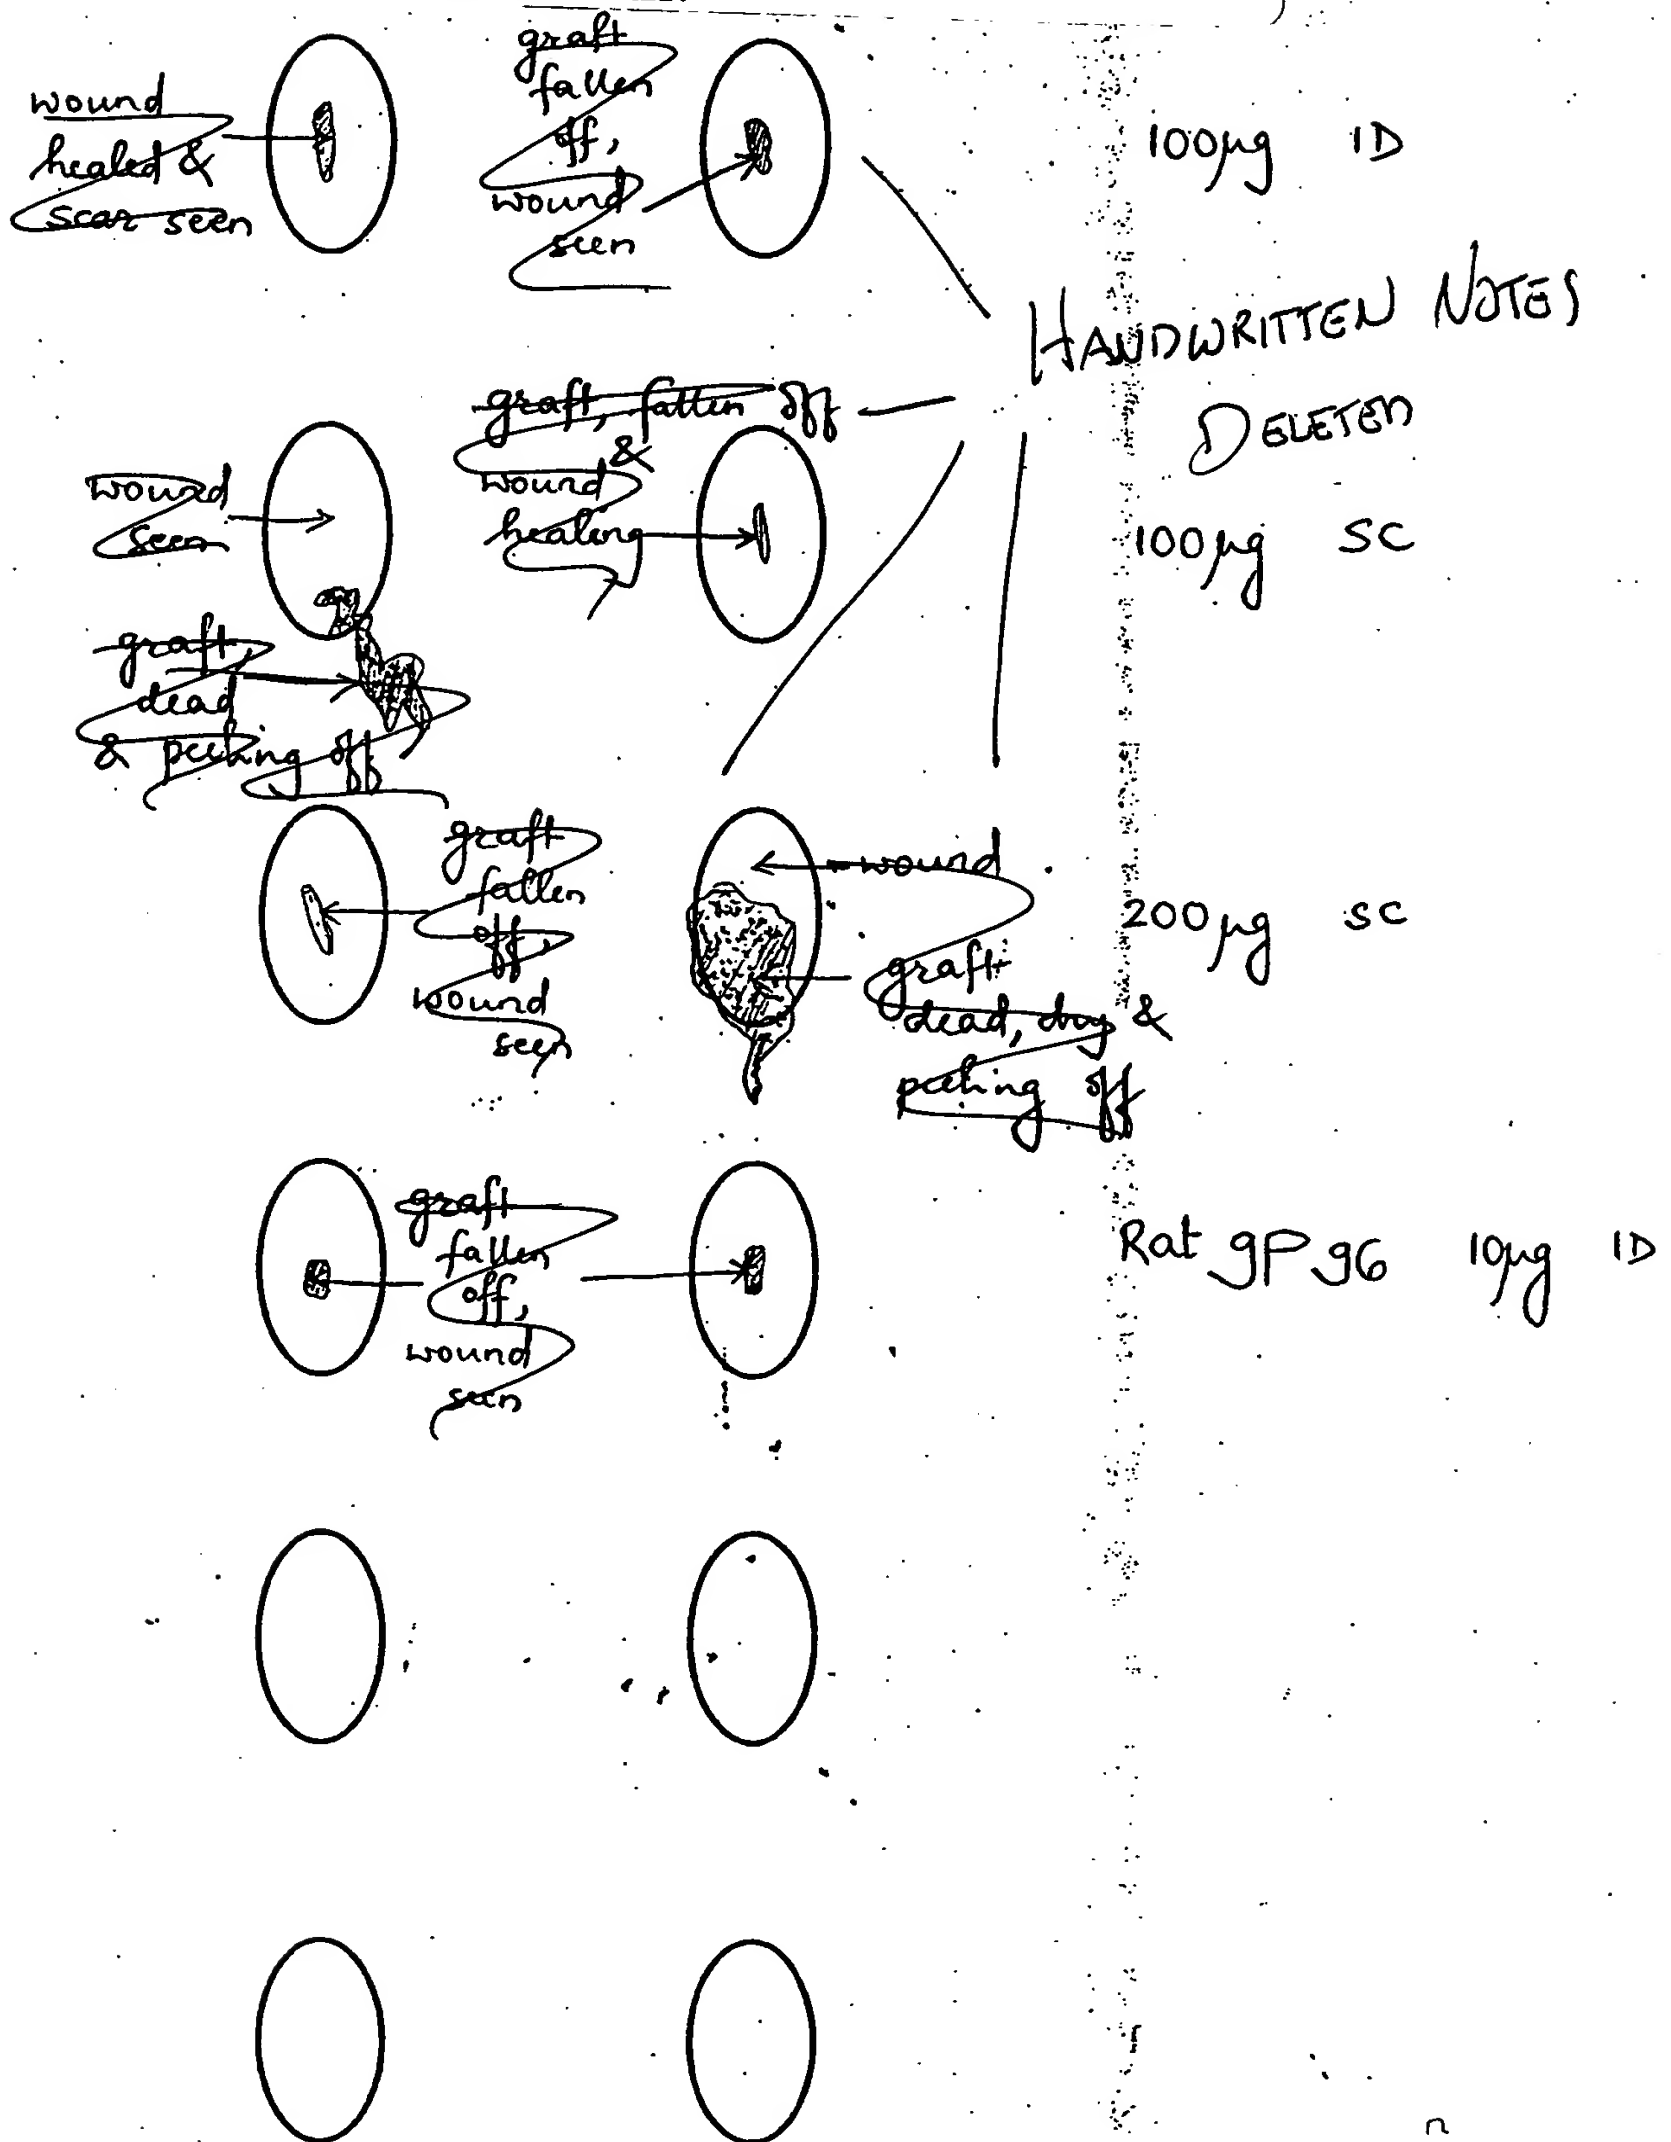 wound
healed &
scar seen
graft
fallen
off,
wound
seen
100µg ID
HANDWRITTEN NOTES
DELETED
graft, fallen off
&
wound
healing
wound
seen
100µg SC
graft,
dead
& peeling off
graft
fallen
off,
wound
seen
wound
graft
dead, dry &
peeling off
200µg SC
graft
fallen
off,
wound
seen
Rat gp 96 10µg ID